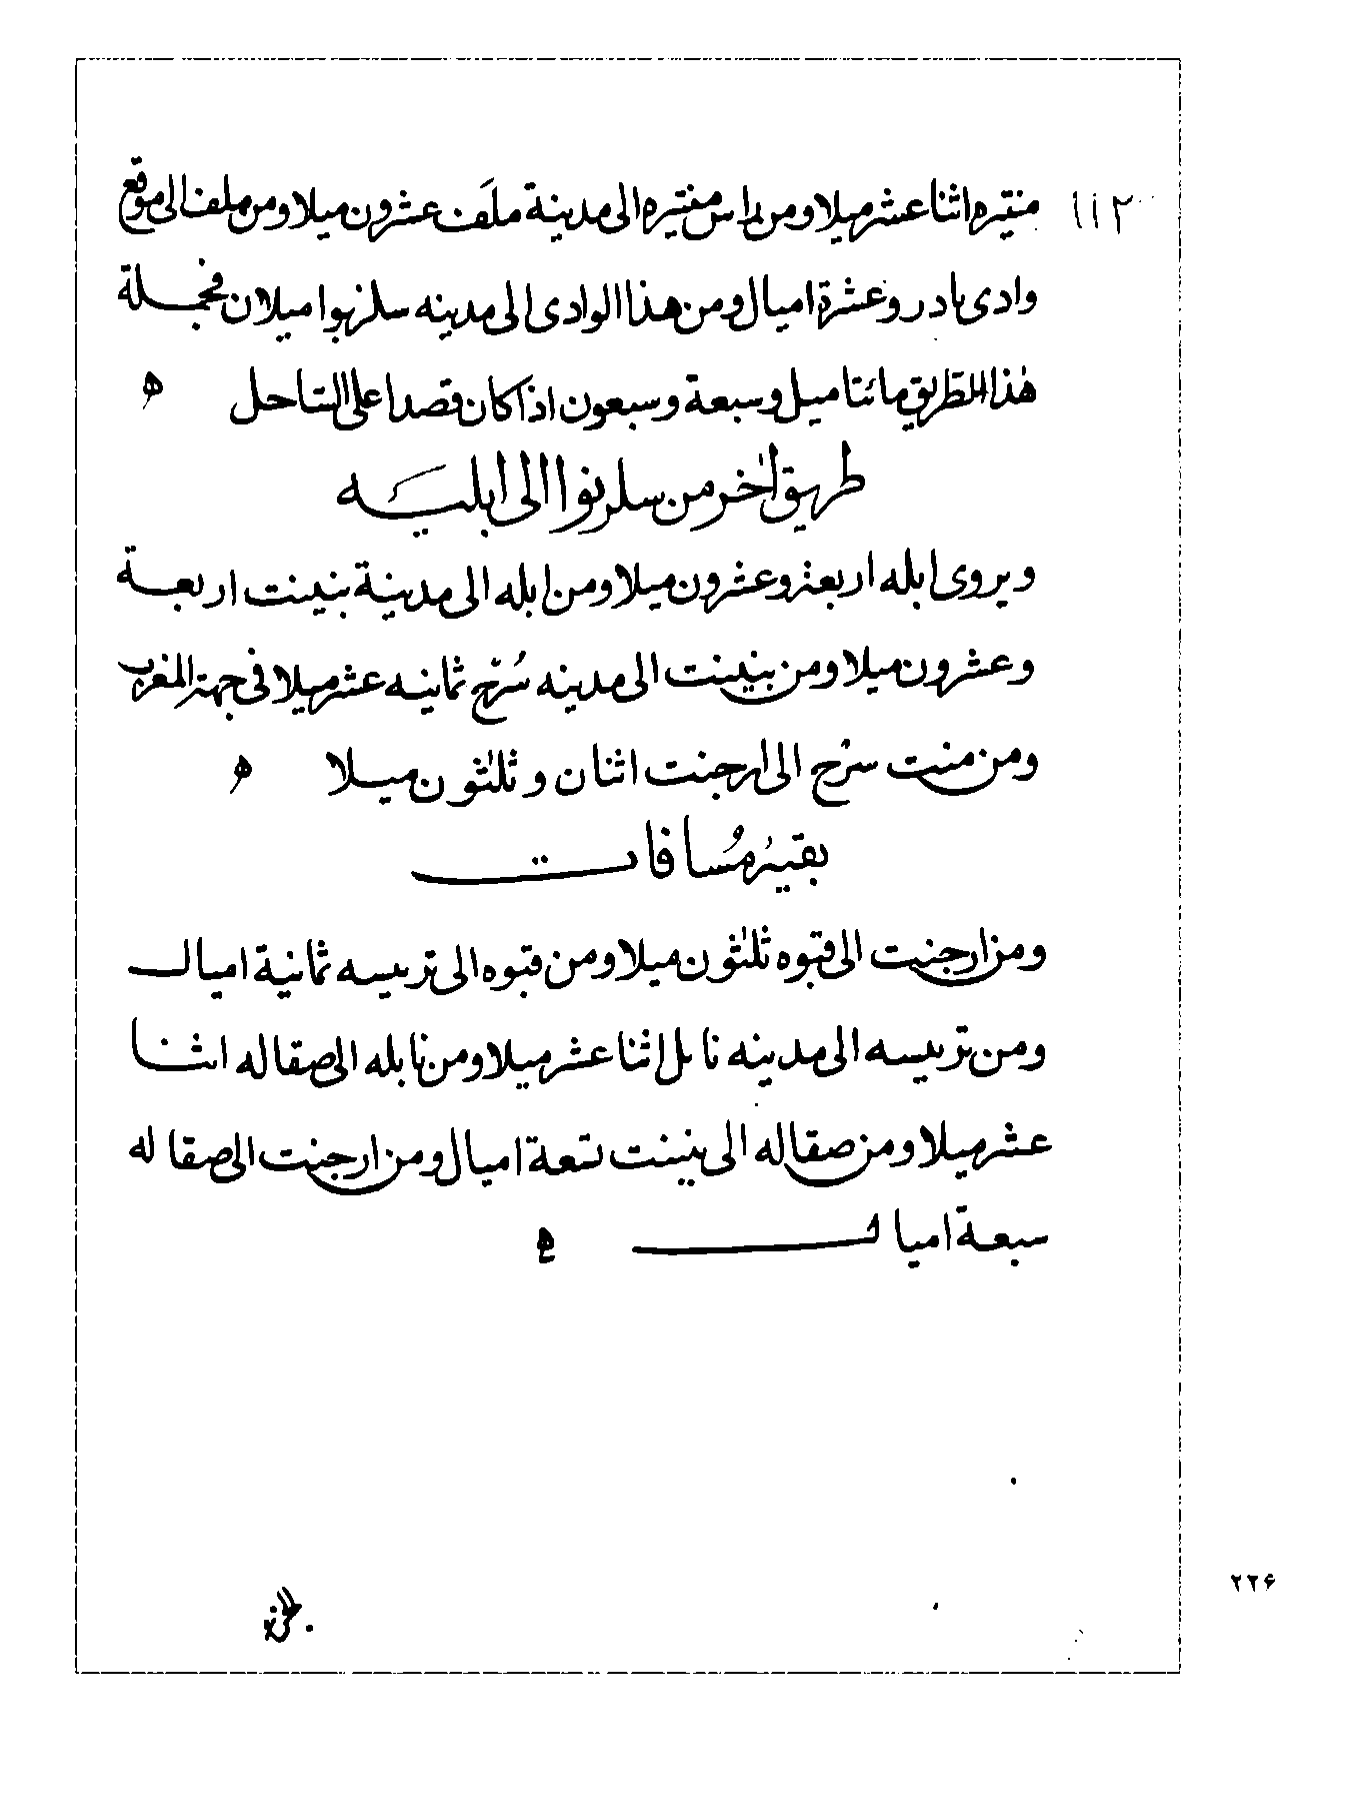 ١١٢
منتيره اثنا عشر ميلا ومن راس منتيره الى مدينة ملَف عشرون ميلا ومن ملف الى موقع
وادى بادرو عشرة اميال ومن هذا الوادى الى مدينه سلرنوا ميلان فجملة
هٰذا الطريق مائتا ميل وسبعة وسبعون اذا كان قصدا على الساحل ه
طريق اٰخر من سلرنوا الى ابليه
ويروى ابله اربعة وعشرون ميلا ومن ابله الى مدينة بنبنت اربعة
وعشرون ميلا ومن بنبنت الى مدينه سُرْح ثمانيه عشر ميلا فى جهة المغرب
ومن منت سرْح الى ارجنت اثنان وثلٰثون ميلا ه
بقيهُ مُسافات
ومن ارجنت الى قتبوه ثلٰثون ميلا ومن قتبوه الى تربيسه ثمانية اميال
ومن تربيسه الى مدينه نابل اثنا عشر ميلا ومن نابله الى صقاله اثنا
عشر ميلا ومن صقاله الى بنبنت تسعة اميال ومن ارجنت الى صقاله
سبعة اميال
٢٢۶